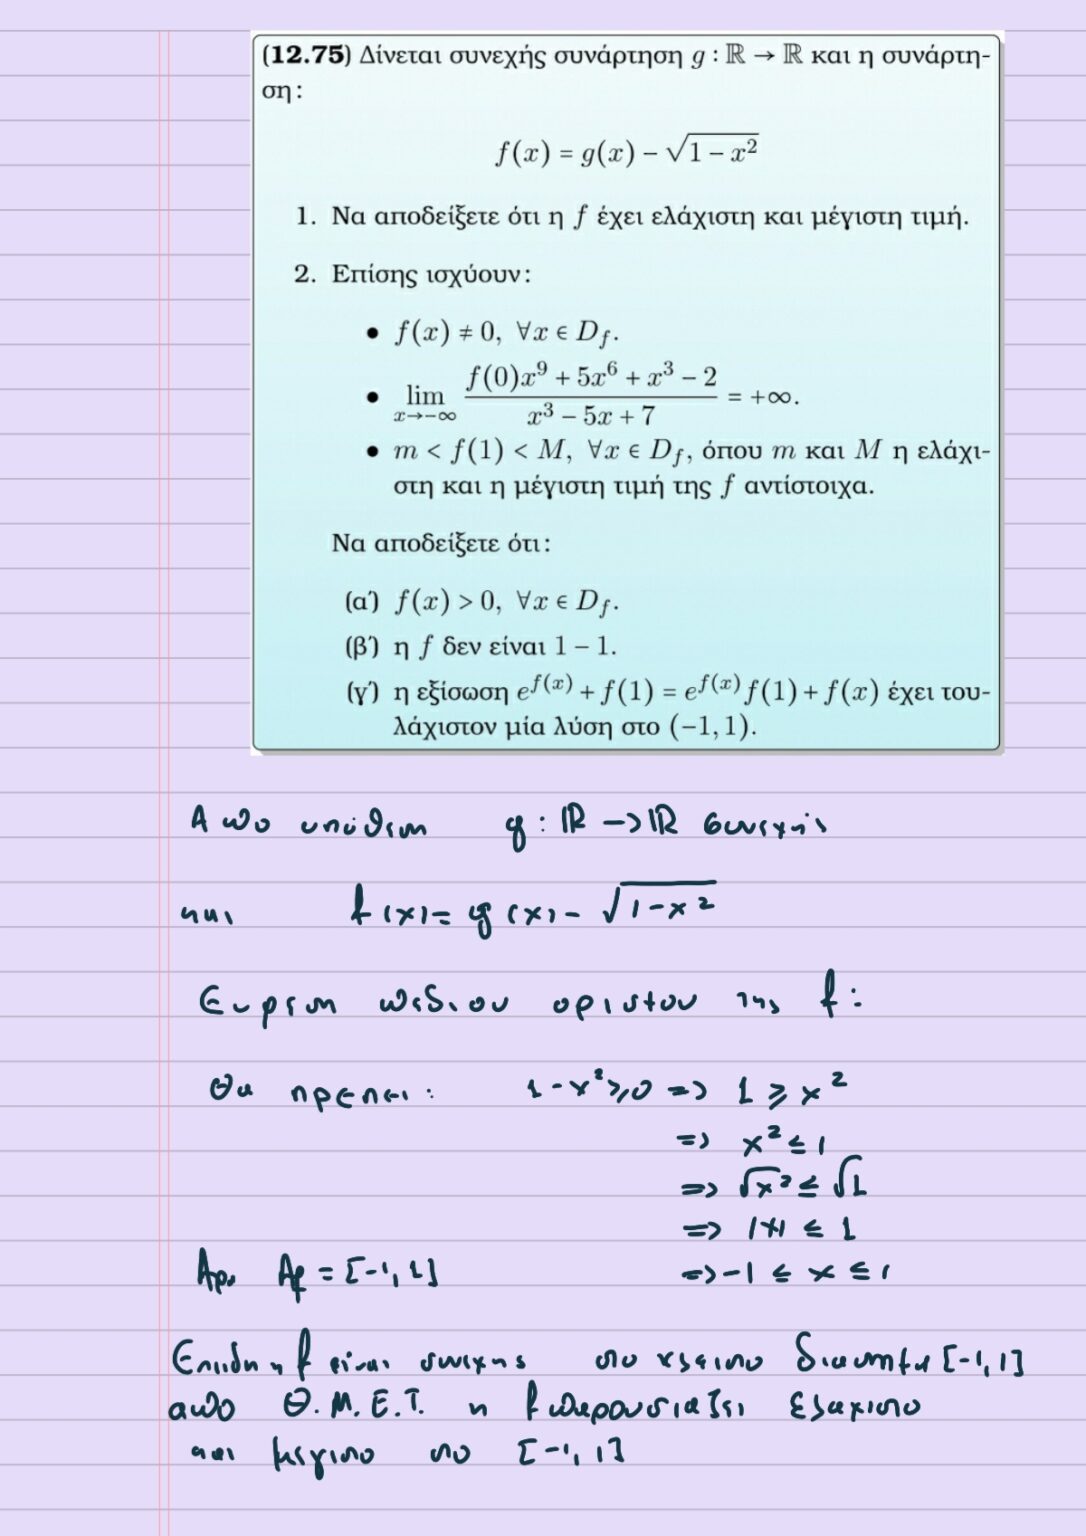 (12.75) Δίνεται συνεχής συνάρτηση g : ℝ → ℝ και η συνάρτη-
ση:
f(x) = g(x) − √(1 − x²)
1. Να αποδείξετε ότι η f έχει ελάχιστη και μέγιστη τιμή.
2. Επίσης ισχύουν:
• f(x) ≠ 0, ∀x ∈ D_f.
• lim_{x→−∞} (f(0)x⁹ + 5x⁶ + x³ − 2)/(x³ − 5x + 7) = +∞.
• m < f(1) < M, ∀x ∈ D_f, όπου m και M η ελάχι-
στη και η μέγιστη τιμή της f αντίστοιχα.
Να αποδείξετε ότι:
(α΄) f(x) > 0, ∀x ∈ D_f.
(β΄) η f δεν είναι 1 − 1.
(γ΄) η εξίσωση e^{f(x)} + f(1) = e^{f(x)} f(1) + f(x) έχει του-
λάχιστον μία λύση στο (−1, 1).
Απο υπόθεση g : ℝ → ℝ συνεχής
και f(x) = g(x) − √(1−x²)
Ευρεση πεδιου ορισμου της f :
Θα πρεπει : 1 − x² ≥ 0 => 1 ≥ x²
=> x² ≤ 1
=> √x² ≤ √1
=> |x| ≤ 1
Αρα A_f = [-1, 1] => -1 ≤ x ≤ 1
Επειδη η f είναι συνεχης στο κλειστο διαστημα [-1, 1]
απο Θ.Μ.Ε.Τ. η f παρουσιαζει ελαχιστο
και μεγιστο στο [-1, 1]